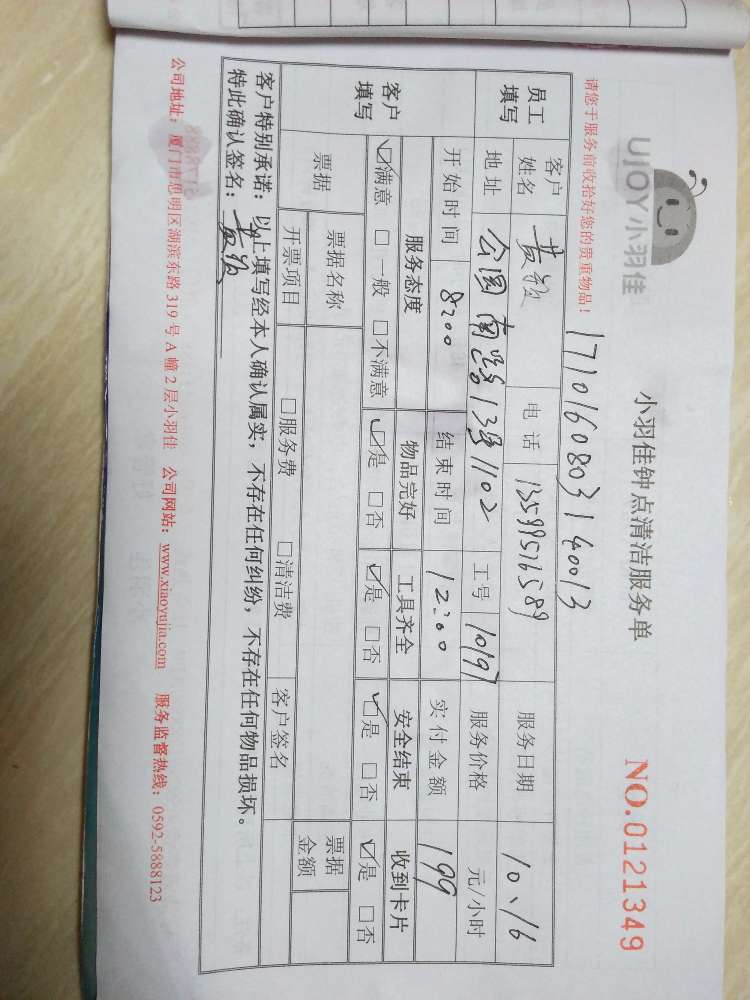 UJOY小羽佳
小羽佳钟点清洁服务单
NO.0121349
请您于服务前收拾好您的贵重物品!
1710160803140013
员工填写
客户姓名 黄 电话 13599516589 服务日期 10、16
地址 公园南路13号1102 工号 10197 服务价格 元/小时
开始时间 8:00 结束时间 12:00 实付金额 199
客户填写
服务态度 物品完好 工具齐全 安全结束 收到卡片
☑满意 □一般 □不满意 ☑是 □否 ☑是 □否 ☑是 □否 ☑是 □否
票据 票据名称 票据金额
开票项目 □服务费 □清洁费 客户签名
客户特别承诺:以上填写经本人确认属实,不存在任何纠纷,不存在任何物品损坏。
特此确认签名:黄
公司地址:厦门市思明区湖滨东路319号A幢2层小羽佳 公司网站:www.xiaoyujia.com 服务监督热线:0592-5888123